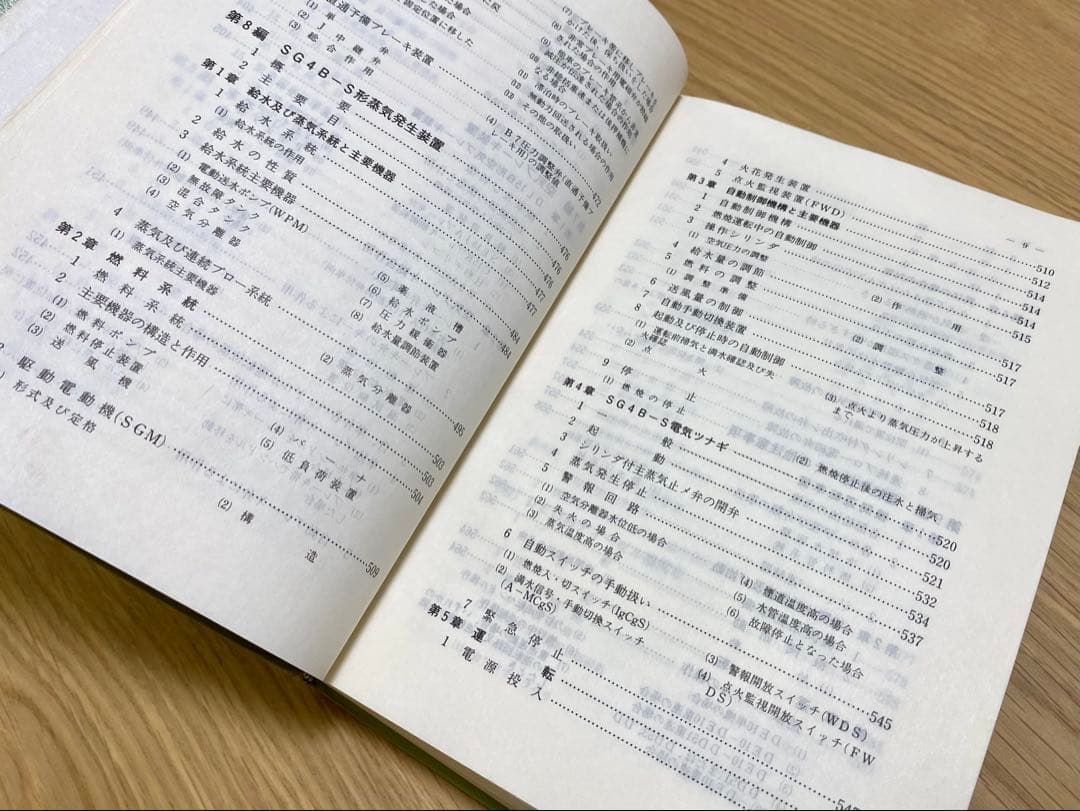 (3) 総合作用
(2) J 中継弁
(1) 単
直通予備ブレーキ装置
固定位置に移した
(8) 非常ブレ
(9) 機車のブレー
(10) 減圧が伝達された場合の作用
なる場合
(11) 非総括重連または後押補機に
(12) 滞泊時のブレーキ取扱い
(13) 無動力回送される場合の作用
その他の取扱い
(4) B7圧力調整弁(直通予備ブ
レーキ用)の調整値
472
第8編 SG4B－S形蒸気発生装置
1 概要
2 主要目
第1章 給水及び蒸気系統と主要機器
1 給水系統
(1) 給水系統の作用
2 給水の性質
3 給水系統主要機器
(1) 電動送水ポンプ(WPM)
(2) 無故限タンク
(3) 混合タンク
(4) 空気分離器
(5) 薬液槽
(6) 給水ポンプ
(7) 圧力緩衝器
(8) 給水量調節装置
476
476
476
477
477
484
4 蒸気及び連続ブロー系統
484
(1) 蒸気系統主要機器
(2) 蒸気分離器
第2章 燃料系統
495
1 燃料系統
503
2 主要機器の構造と作用
503
(1) 燃料ポンプ
(2) 燃料停止装置
(3) 送風機
(4) バーナ
(5) 低負荷装置
504
駆動電動機(SGM)
509
形式及び定格
(2) 構造
－9－
4 火花発生装置 510
5 点火監視装置(FWD) 512
第3章 自動制御機構と主要機器 514
1 自動制御機構 514
2 燃焼運転中の自動制御 515
3 操作シリンダ
(1) 空気圧力の調整
(2) 作用
4 給水量の調節 517
5 燃料の調整 517
(1) 調整準備
(2) 調整
6 送風量の制御 517
7 自動手動切換装置 518
8 起動及び停止時の自動制御 518
(1) 運転前換気と満水確認及び失
火確認
(2) 点火
(3) 点火より蒸気圧力が上昇する
まで
9 停止
(1) 燃焼の停止
(2) 燃焼停止後の注水と換気
第4章 SG4B－S電気ツナギ 520
1 一般 520
2 起動 521
3 シリンダ付主蒸気止メ弁の開弁 532
4 蒸気発生停止 534
5 警報回路 537
(1) 空気分離器水位低の場合
(2) 失火の場合
(3) 蒸気温度高の場合
(4) 煙道温度高の場合
(5) 水管温度高の場合
(6) 故障停止となった場合
6 自動スイッチの手動扱い 545
(1) 燃焼入・切スイッチ(IgCgS)
(2) 満水信号・手動切換スイッチ
(A－MCgS)
(3) 警報開放スイッチ(WDS)
(4) 点火監視開放スイッチ(FW
DS)
7 緊急停止
第5章 運転
1 電源投入